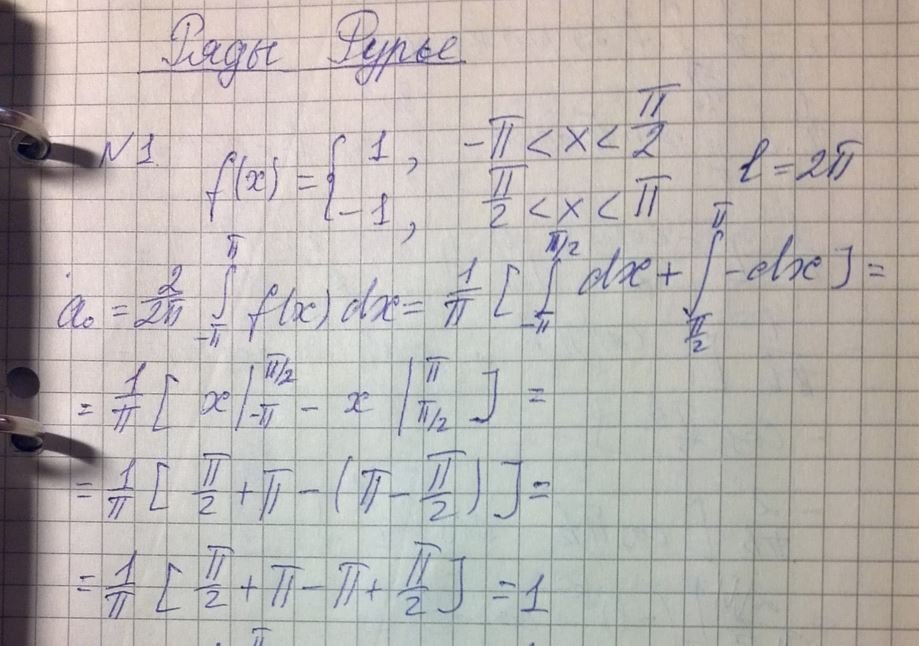 Ряды Фурье
N1. f(x) = { 1, -π < x < π/2
-1, π/2 < x < π
l = 2π
a₀ = 2/2π ∫_{-π}^{π} f(x) dx = 1/π [ ∫_{-π}^{π/2} dx + ∫_{π/2}^{π} -dx ] =
= 1/π [ x |_{-π}^{π/2} - x |_{π/2}^{π} ] =
= 1/π [ π/2 + π - (π - π/2) ] =
= 1/π [ π/2 + π - π + π/2 ] = 1